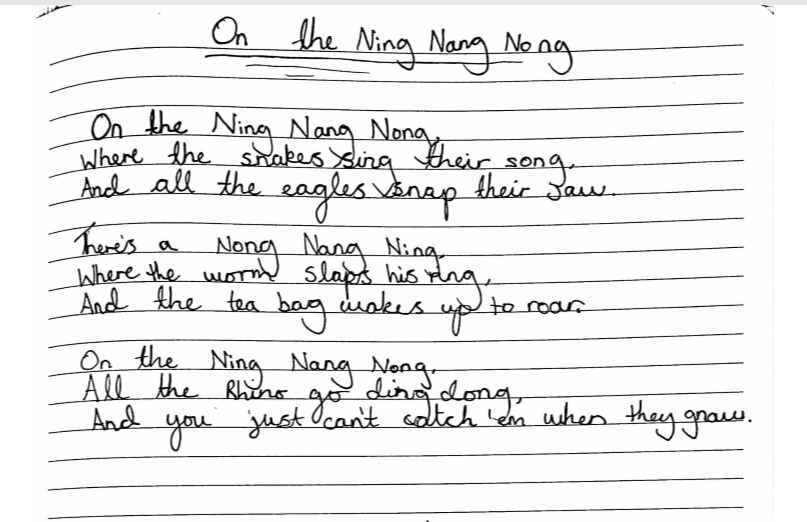 On the Ning Nang Nong
On the Ning Nang Nong,
Where the snakes sing their song,
And all the eagles snap their jaw.
There's a Nong Nang Ning
Where the worm slaps his ring,
And the tea bag wakes up to roar.
On the Ning Nang Nong,
All the Rhino go ding dong,
And you just can't catch 'em when they gnaw.